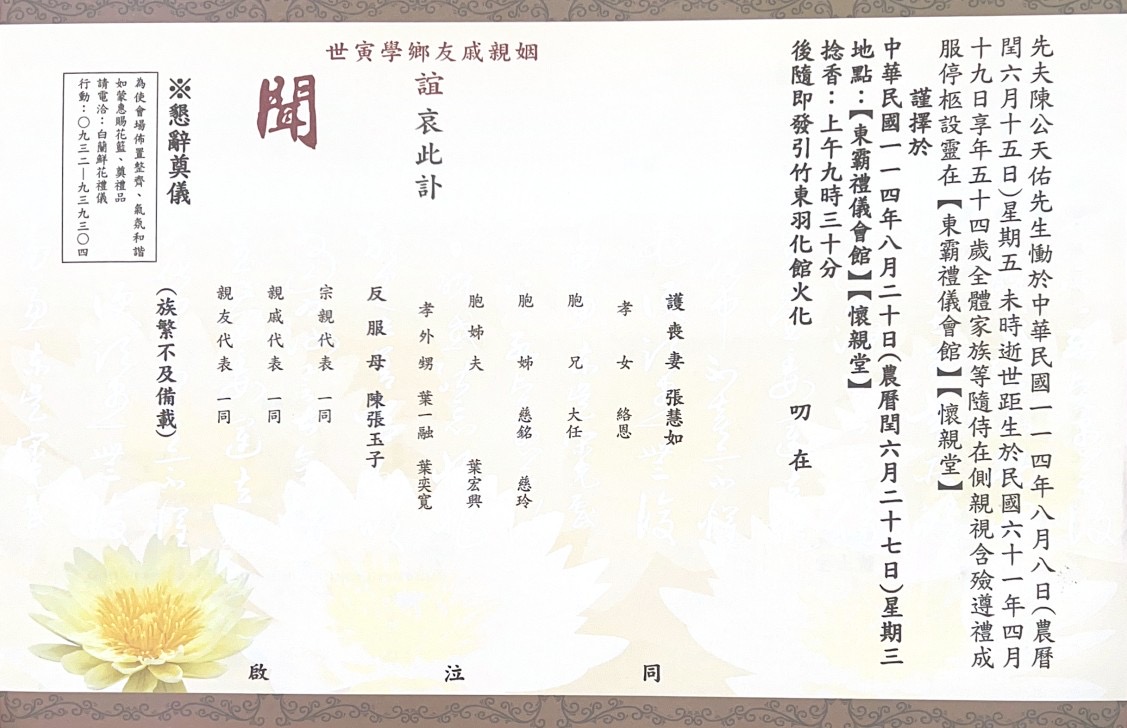 先夫陳公天佑先生慟於中華民國一一四年八月八日(農曆
閏六月十五日)星期五 未時逝世距生於民國六十一年四月
十九日享年五十四歲全體家族等隨侍在側親視含殮遵禮成
服停柩設靈在【東霸禮儀會館】【懷親堂】
謹擇於
中華民國一一四年八月二十日(農曆閏六月二十七日)星期三
地點：【東霸禮儀會館】【懷親堂】
捻香：上午九時三十分
後隨即發引竹東羽化館火化 叨在
護喪妻 張慧如
孝女 絡恩
胞兄 大任
胞姊 慈銘 慈玲
胞姊夫 葉宏興
孝外甥 葉一融 葉奕寬
反服母 陳張玉子
宗親代表 一同
親戚代表 一同
親友代表 一同
(族繁不及備載)
同泣啟
姻親戚友鄉學寅世
誼哀此訃
聞
※懇辭奠儀
為使會場佈置整齊、氣氛和諧
如蒙惠賜花籃、奠禮品
請電洽：白蘭鮮花禮儀
行動：〇九三二—九三九三〇四